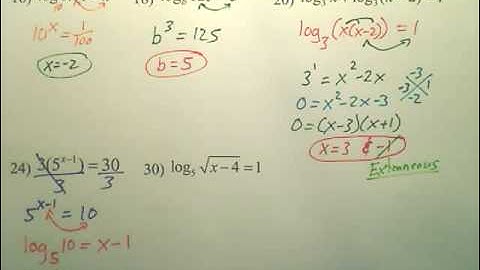 10^x = 1/100
x = -2
b^3 = 125
b = 5
log_3(x(x-2)) = 1
3^1 = x^2 - 2x
0 = x^2 - 2x - 3
-3
-3 1
-2
0 = (x-3)(x+1)
x = 3 & -1
Extraneous
24) 3(5^(x-1))/3 = 30/3
5^(x-1) = 10
log_5 10 = x - 1
30) log_5 √(x-4) = 1